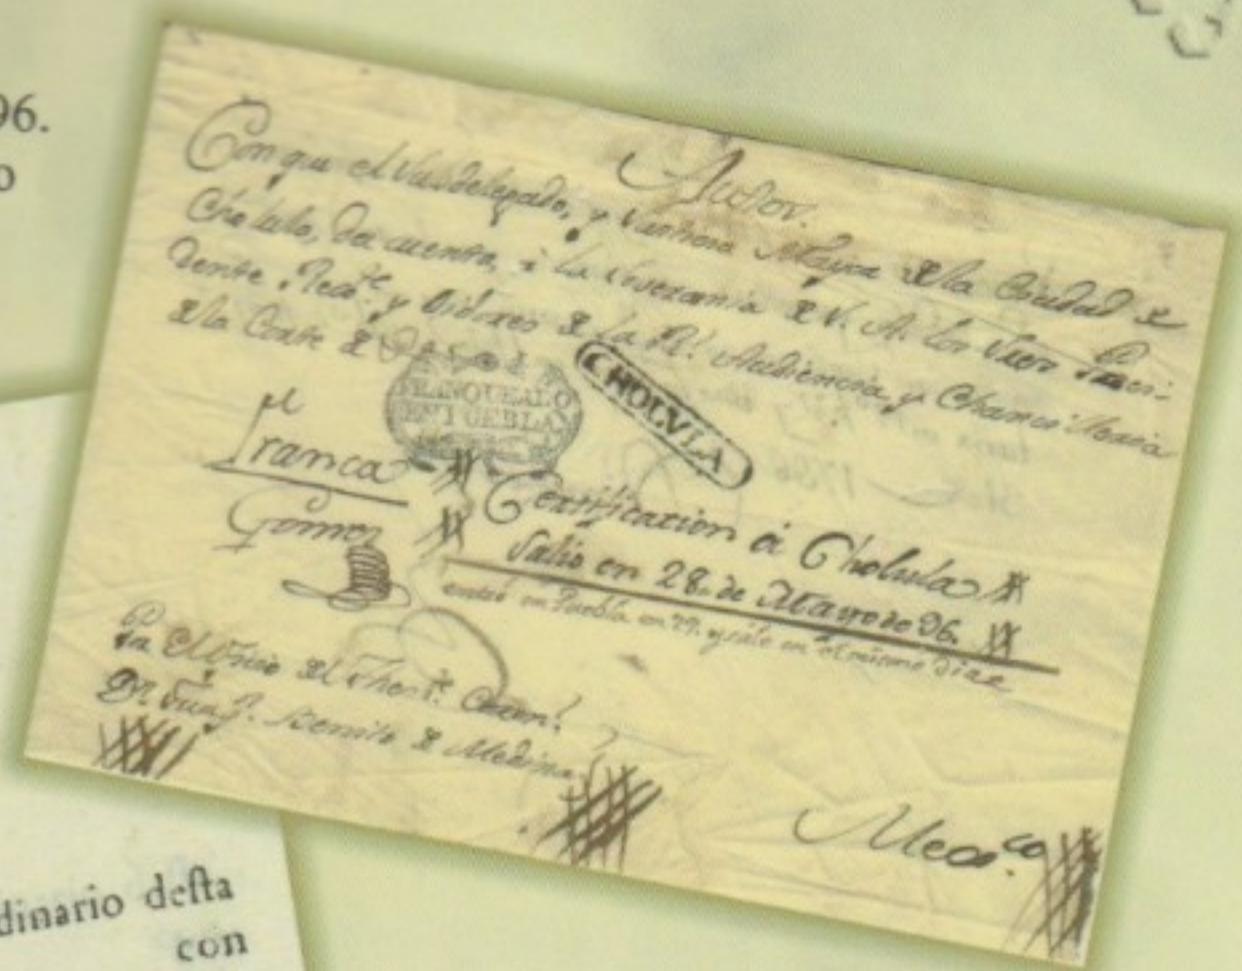 96.
o
Autos.
Con que el Subdelegado, y Justicia Mayor de la Ciudad de
Cholula, da cuenta, à la Soverania de V. A. los
dente Reg.te y Oidores de la R.l Audiencia, y Chancilleria
de la Corte de
FRANQUEADO
EN PUEBLA
CHOLVLA
franca
Gómez
Certificacion à Cholula
Salio en 28. de Mayo de 96.
entró en Puebla en 29. y salió en el mismo dia
El Oficio del Then.te Coron.l
Dn. Benito de Medina
Mexco.
dinario deſta
con